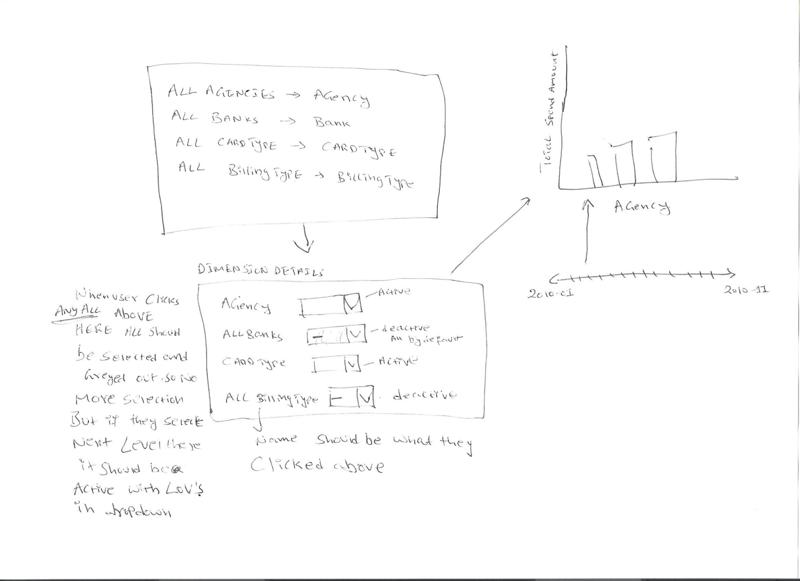 ALL AGENCIES → Agency
ALL BANKS → Bank
ALL CARDTYPE → CARDTYPE
ALL BillingTYPE → BillingTYPE
DIMENSION DETAILS
Agency
Active
ALL BANKS
deactive
All by default
CARDTYPE
Active
ALL BillingType
deactive
Name should be what they
Clicked above
When user Clicks
ANY ALL ABOVE
HERE All should
be selected and
Greyed out. so no
More selection
But if they select
Next Level there
it should be
Active with LOV's
in dropdown
Total Spend Amount
Agency
2010-01
2010-11